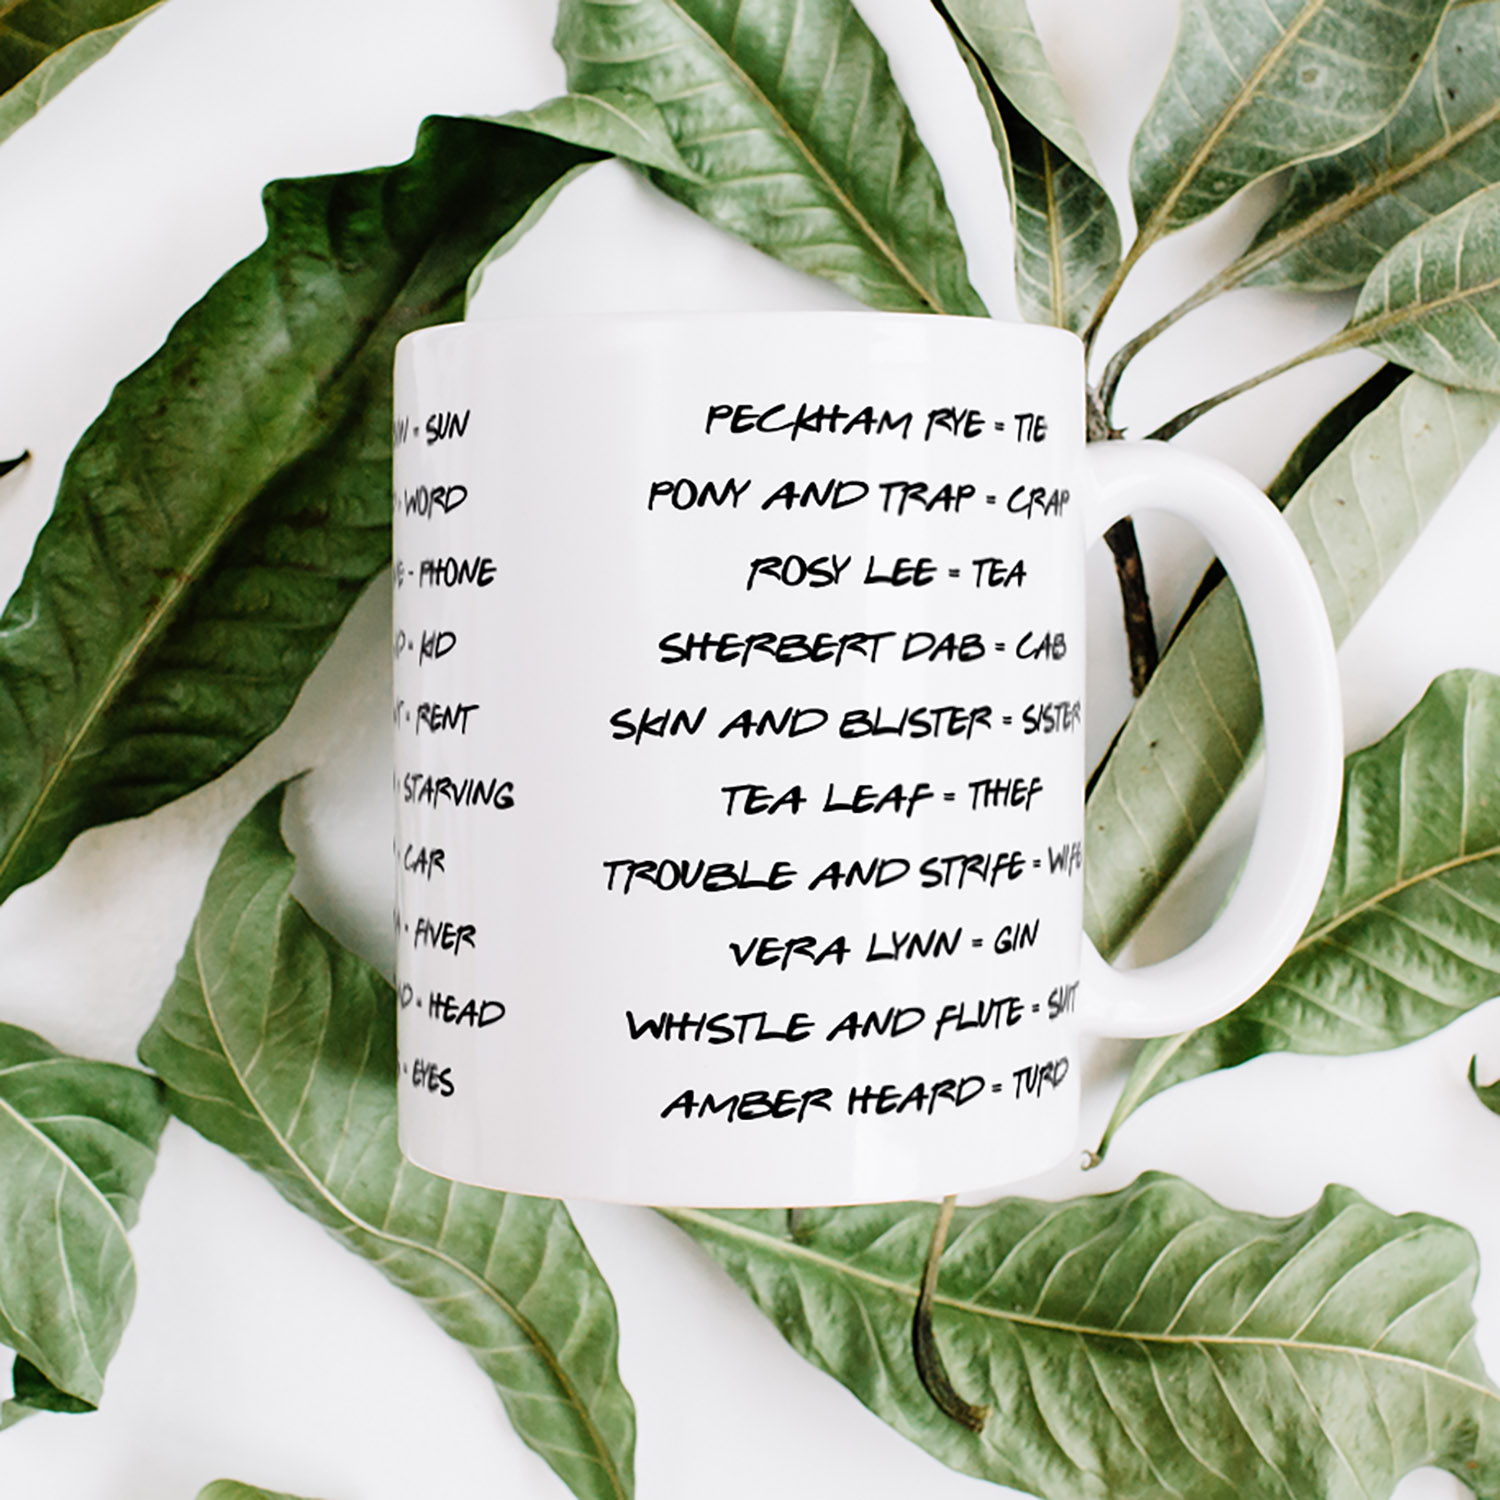 = SUN
= WORD
- PHONE
= KID
= RENT
= STARVING
= CAR
= FIVER
= HEAD
= EYES
PECKHAM RYE = TIE
PONY AND TRAP = CRAP
ROSY LEE = TEA
SHERBERT DAB = CAB
SKIN AND BLISTER = SISTER
TEA LEAF = THIEF
TROUBLE AND STRIFE = WIFE
VERA LYNN = GIN
WHISTLE AND FLUTE = SUIT
AMBER HEARD = TURD